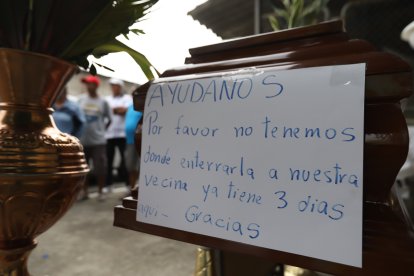 AYUDANOS
Por favor no tenemos
donde enterrarla a nuestra
vecina ya tiene 3 dias
aqui - Gracias